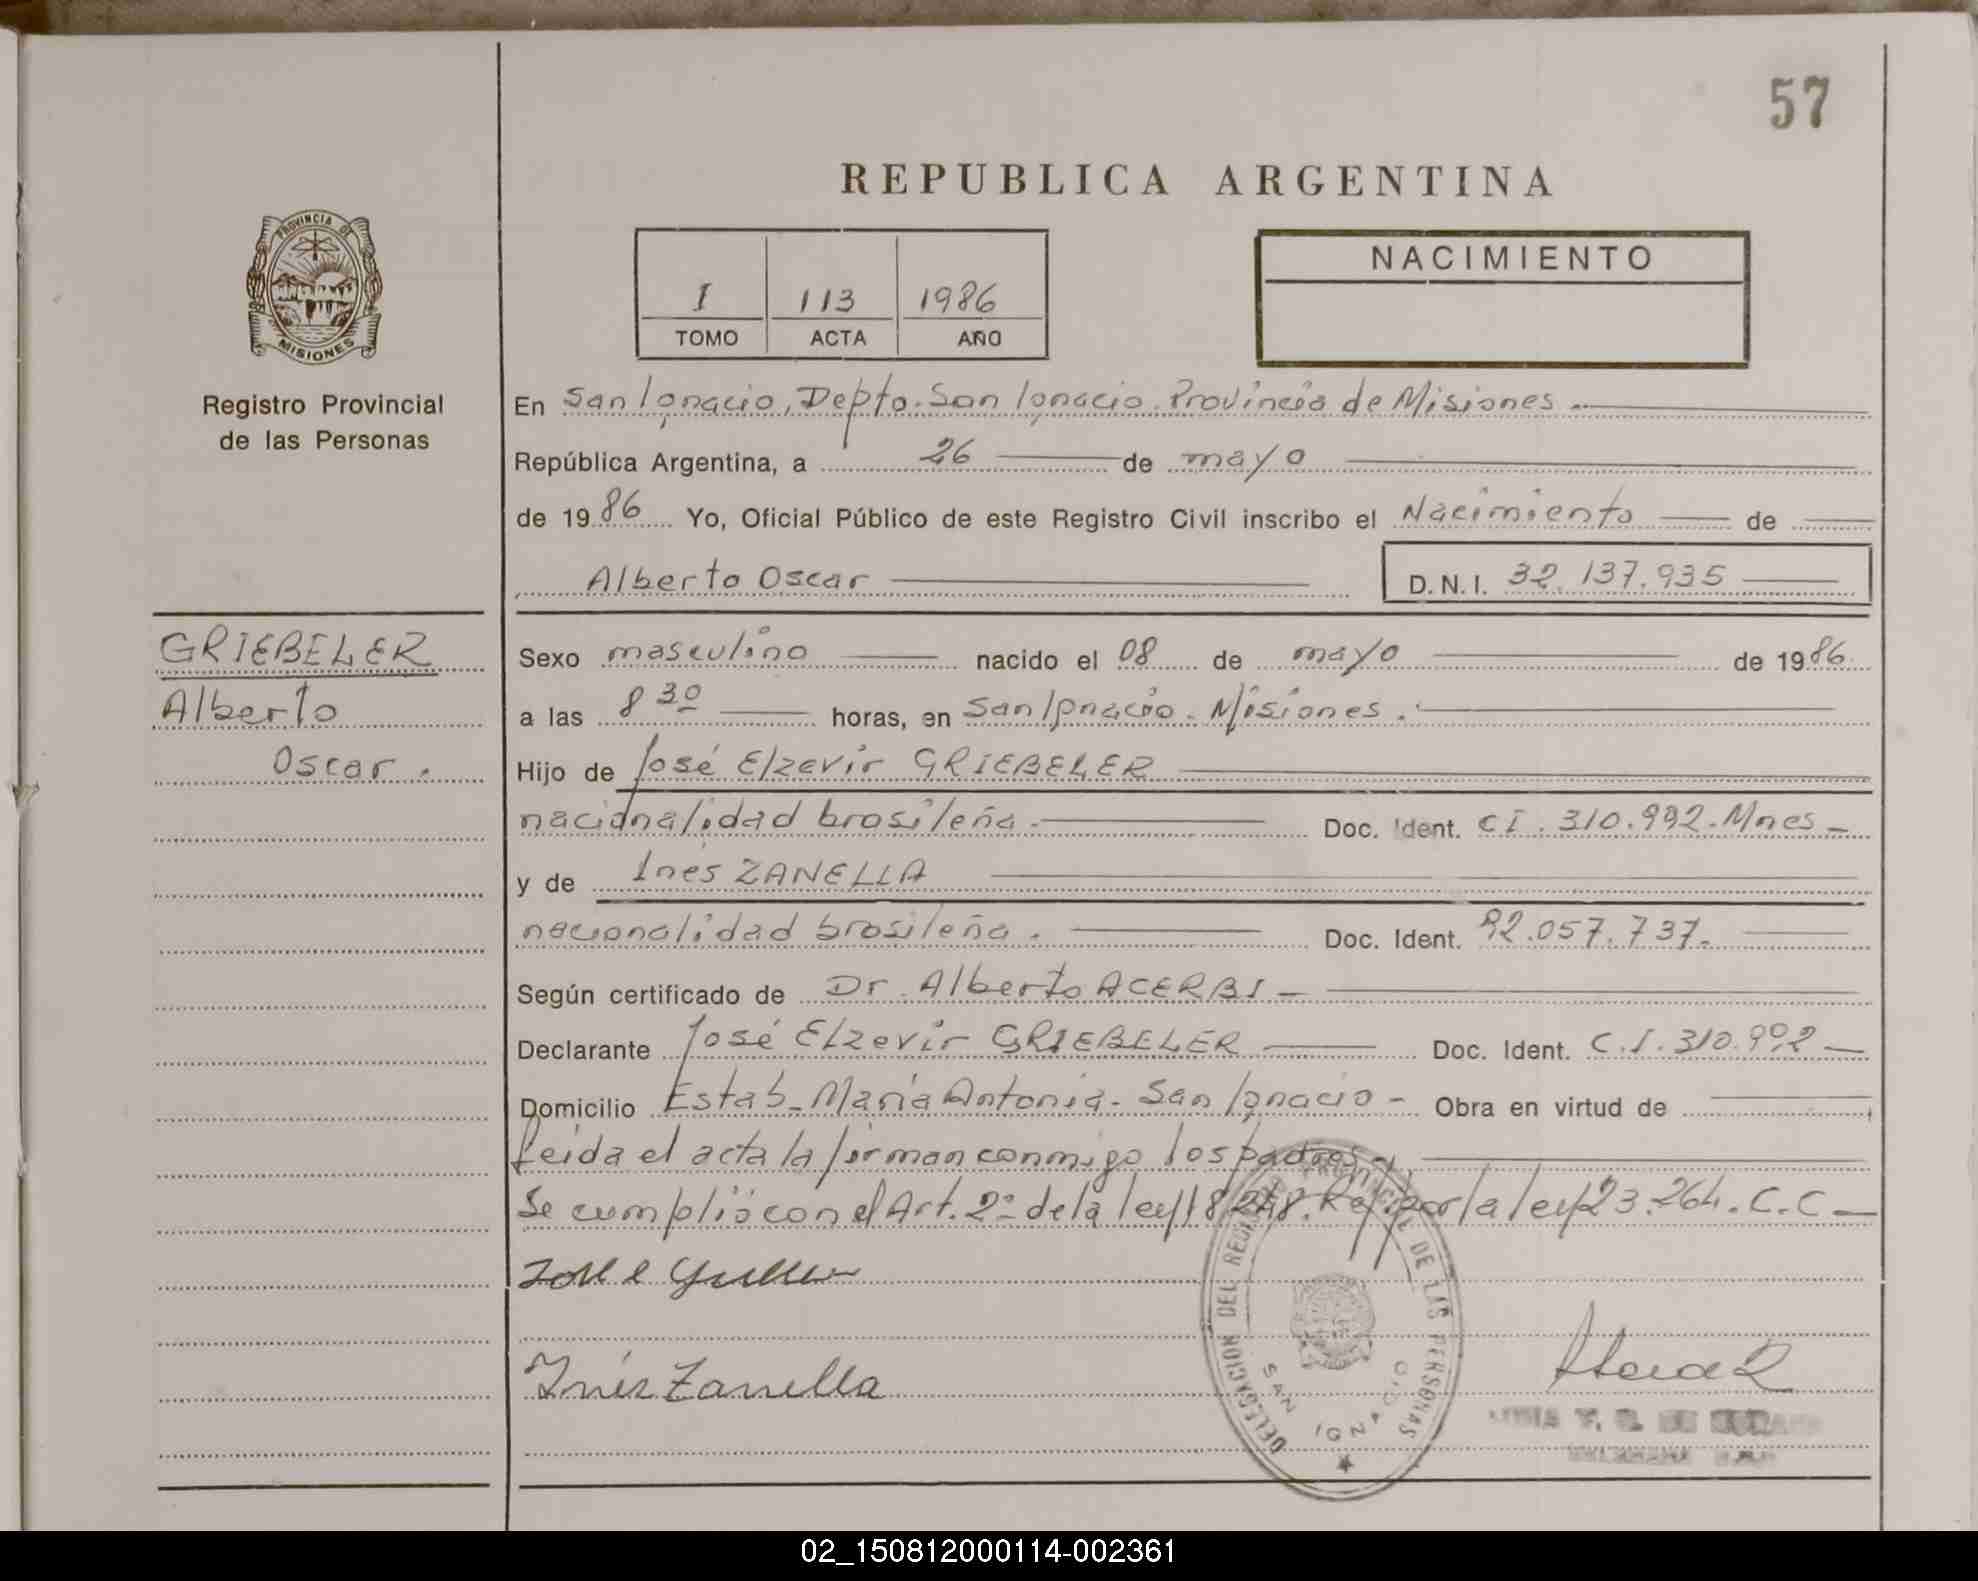 57
REPUBLICA ARGENTINA
PROVINCIA DE
MISIONES
Registro Provincial
de las Personas
I 113 1986
TOMO ACTA AÑO
NACIMIENTO
En San Ignacio, Depto. San Ignacio. Provincia de Misiones.
República Argentina, a 26 de mayo
de 1986 Yo, Oficial Público de este Registro Civil inscribo el Nacimiento de
Alberto Oscar D.N.I. 32.137.935
GRIEBELER
Alberto
Oscar.
Sexo masculino nacido el 08 de mayo de 1986
a las 8 30 horas, en San Ignacio. Misiones.
Hijo de José Elzevir GRIEBELER
nacionalidad brasileña. Doc. Ident. CI. 310.992. Mnes
y de Inés ZANELLA
nacionalidad brasileña. Doc. Ident. 92.057.737.
Según certificado de Dr. Alberto ACERBI
Declarante José Elzevir GRIEBELER Doc. Ident. C.I. 310.992
Domicilio Estab. María Antonia. San Ignacio Obra en virtud de
leída el acta la firman conmigo los padres
Se cumplió con el Art. 2º de la ley 18248. Ref por la ley 23.264. C.C
Inés Zanella
DELEGACION DEL REGISTRO PROVINCIAL DE LAS PERSONAS
SAN IGNACIO
02_150812000114-002361